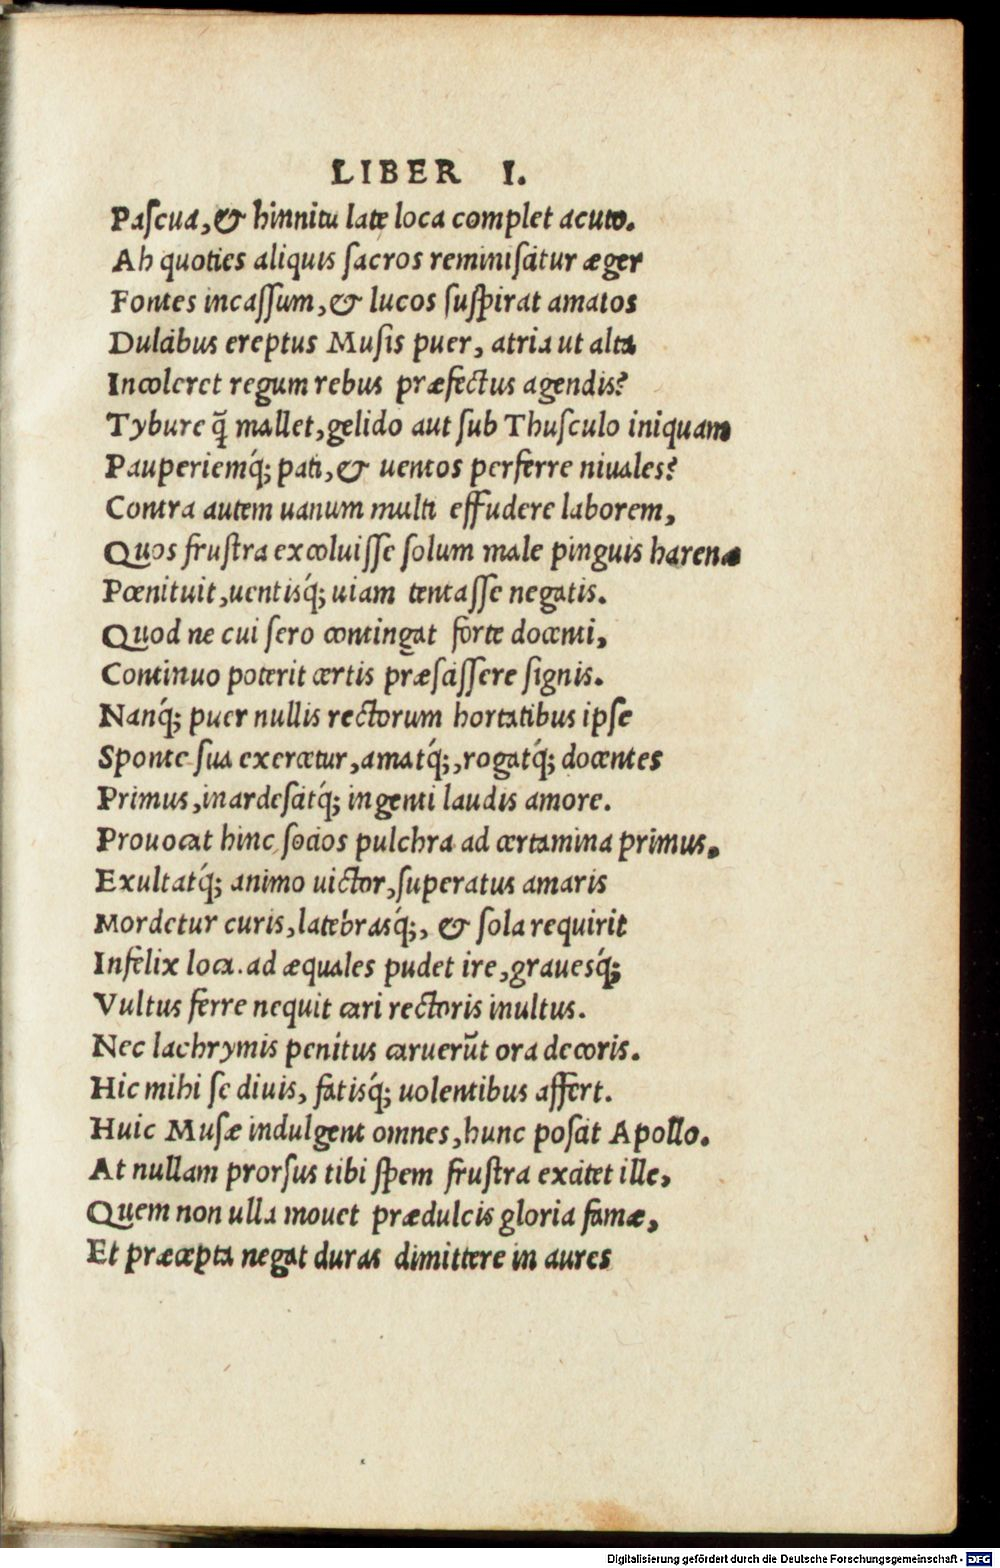 LIBER I.
Paſcua, & hinnitu late loca complet acuto.
Ah quoties aliquis ſacros reminiſcitur æger
Fontes incaſſum, & lucos ſuſpirat amatos
Dulcibus ereptus Muſis puer, atria ut alta
Incoleret regum rebus præfectus agendis?
Tybure q̄ mallet, gelido aut ſub Thuſculo iniquam
Pauperiemq́; pati, & uentos perferre niuales?
Contra autem uanum multi effudere laborem,
Quos fruſtra excoluiſſe ſolum male pinguis harenæ
Pœnituit, uentisq́; uiam tentaſſe negatis.
Quod ne cui ſero contingat forte docenti,
Continuo poterit certis præſciſſere ſignis.
Nanq́; puer nullis rectorum hortatibus ipſe
Sponte ſua exercetur, amatq́;, rogatq́; docentes
Primus, inardeſcitq́; ingenti laudis amore.
Prouocat hinc ſocios pulchra ad certamina primus,
Exultatq́; animo uictor, ſuperatus amaris
Mordetur curis, latebrasq́;, & ſola requirit
Infelix loca. ad æquales pudet ire, grauesq́;
Vultus ferre nequit cari rectoris inultus.
Nec lachrymis penitus caruerūt ora decoris.
Hic mihi ſe diuis, fatisq́; uolentibus affert.
Huic Muſæ indulgent omnes, hunc poſcit Apollo.
At nullam prorſus tibi ſpem fruſtra excitet ille,
Quem non ulla mouet prædulcis gloria famæ,
Et præcepta negat duras dimittere in aures
Digitalisierung gefördert durch die Deutsche Forschungsgemeinschaft - DFG